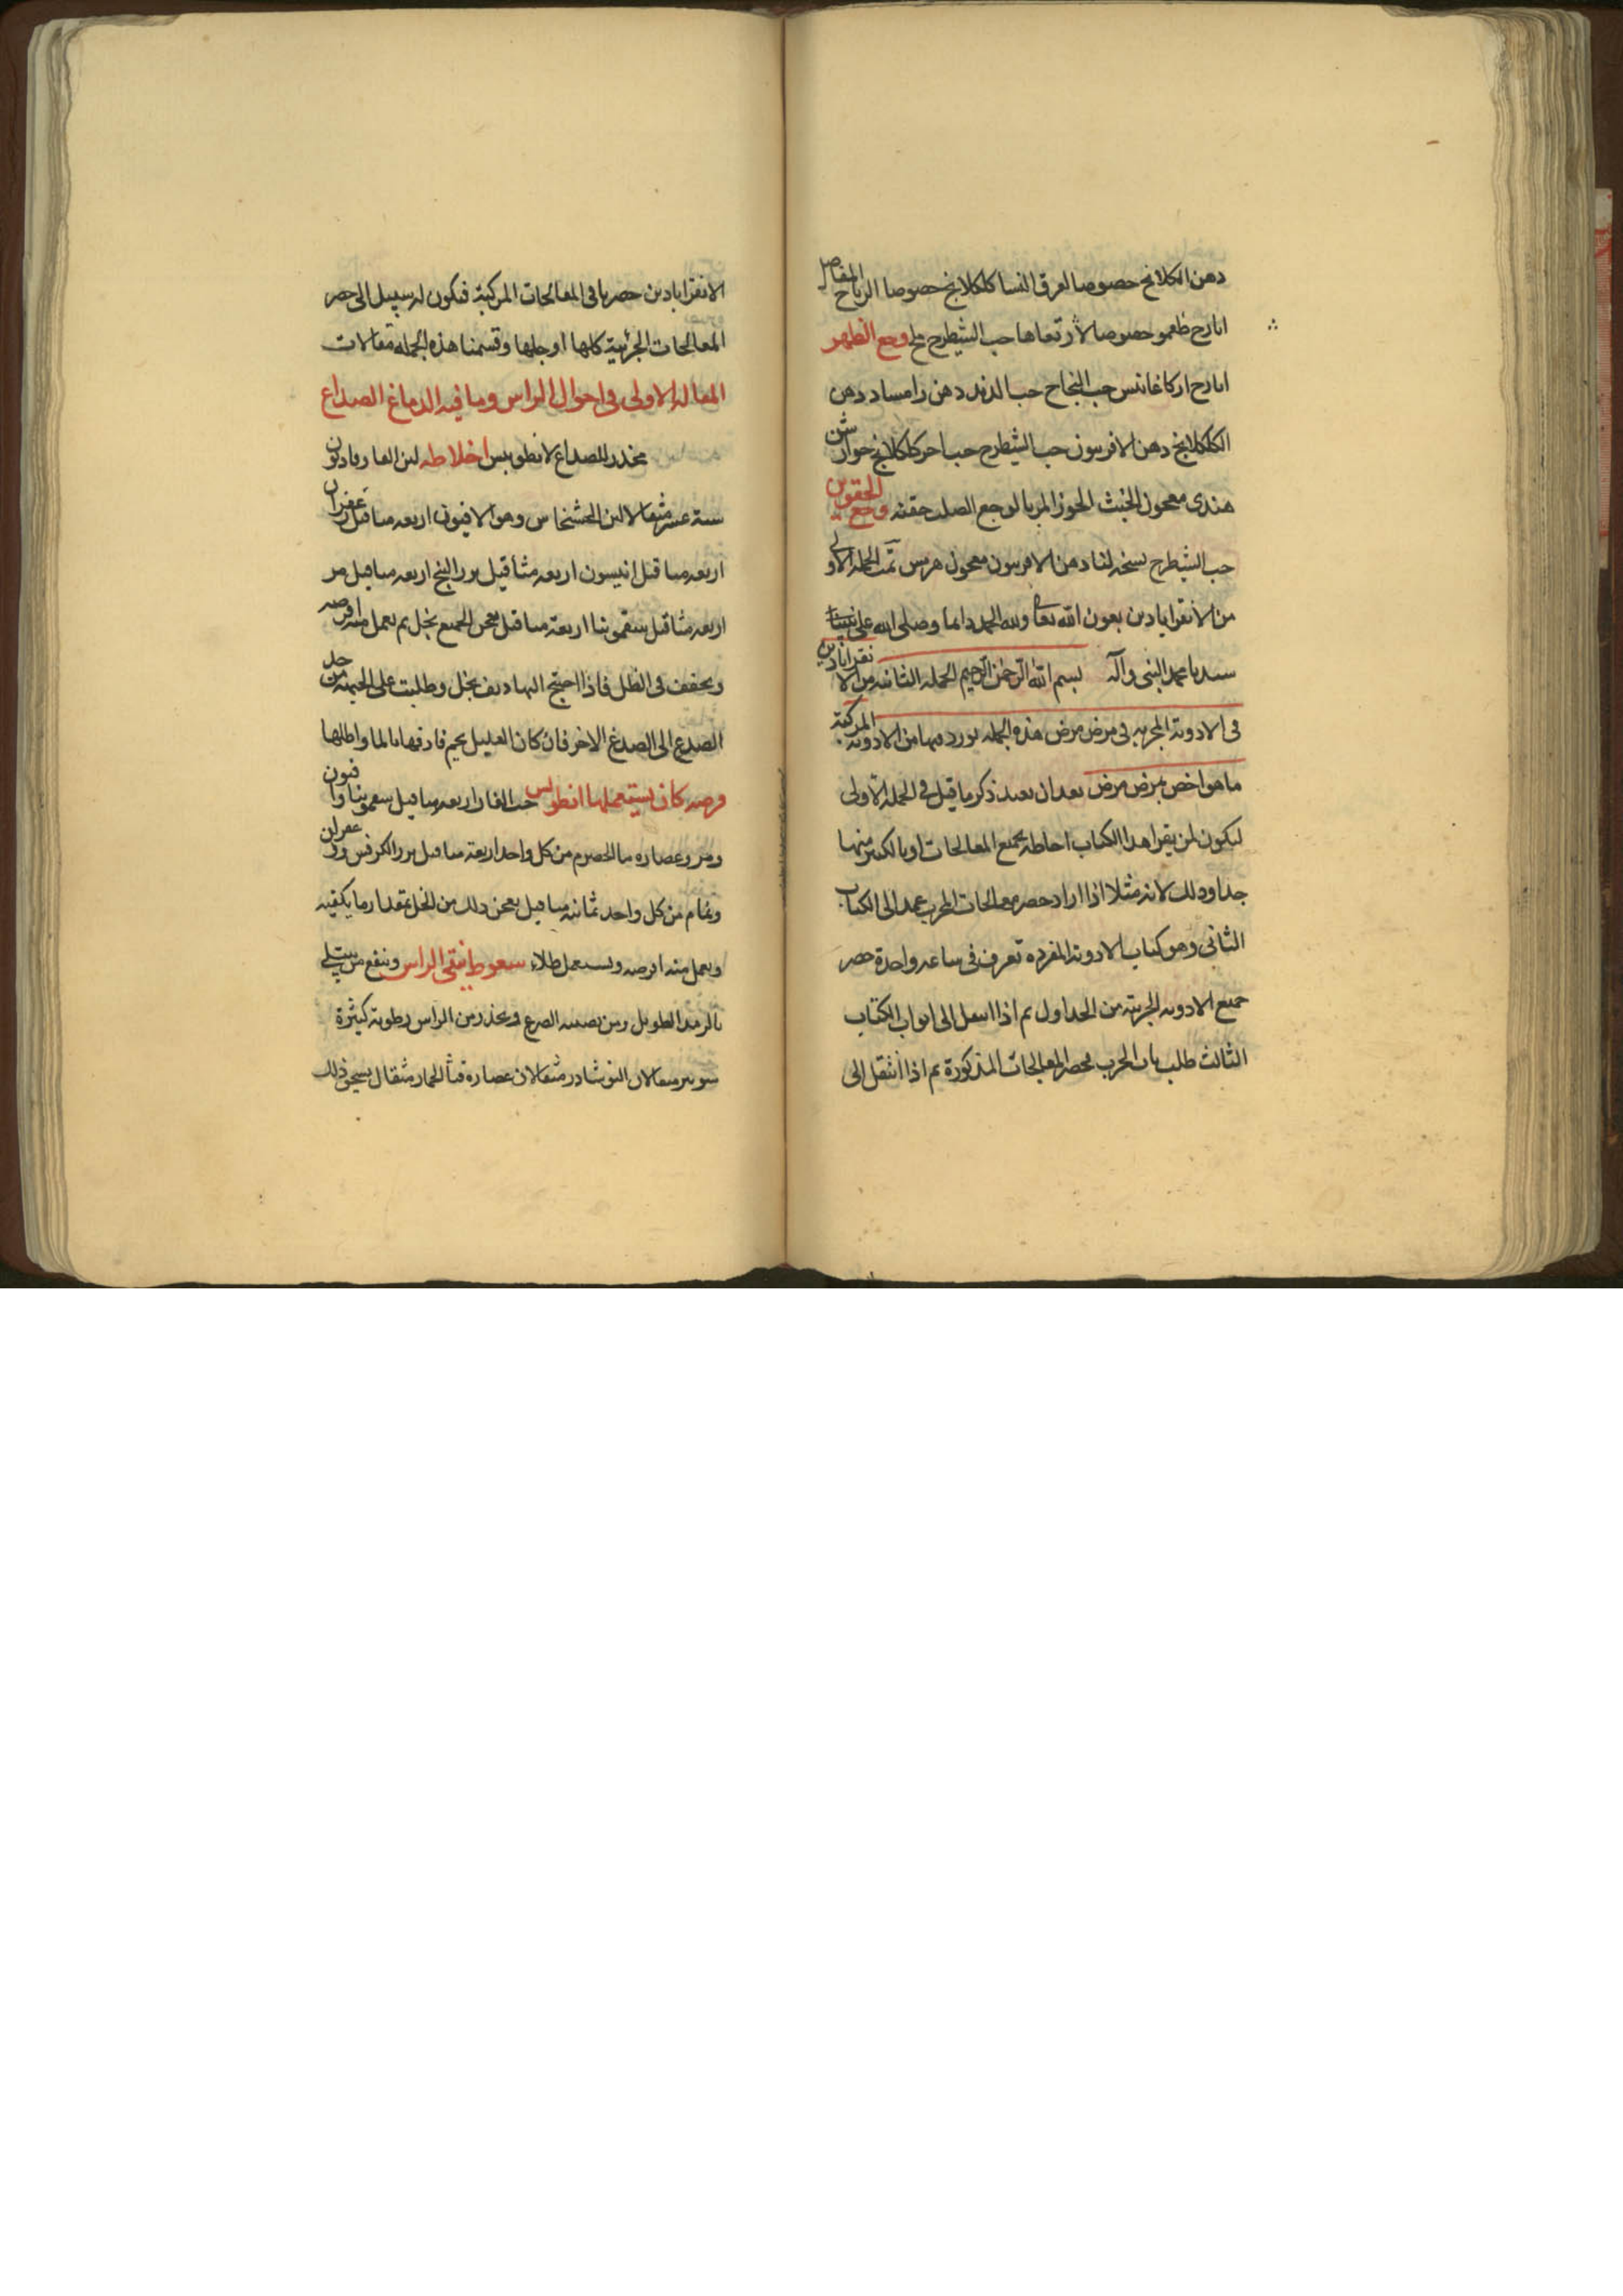 دهن الكلكلانج خصوصا لعرق النسا كلكلانج خصوصا الرياح المفاصل
ايارج خصوصا لارتعاها حب الشيطرج وجع الظهر
ايارج اركاغانيس حب النجاح حب الدند دهن رامساد دهن
الكلكلانج دهن الافربيون حب الشيطرج كلكلانج جوارشن
هندى معجون الخبث الجوز المربا لوجع الصلب حقنه وجع الحقوين
حب الشيطرج نسخه لنا دهن الافربيون معجون هرمس تمت الجمله الاولى
من الانقراباذين بعون الله تعا ولله الحمد دايما وصلى الله على نبينا
سيدنا محمد النبى وآله بسم الله الرحمن الرحيم الجمله الثانيه من الانقراباذين
فى الادوية المجربه فى مرض مرض هذه الجمله نورد فيها من الادويه المركبة
ما هو اخص بمرض مرض بعد ان نعيد ذكر ما قيل فى الجملة الاولى
ليكون لمن يقرا هذا الكتاب احاطه بجميع المعالجات او بالكثير منها
جدا وذلك لانه مثلا اذا اراد حصر معالجات الجرب عمد الى الكتاب
الثانى وهو كتاب الادوية المفرده تعرف فى ساعه واحدة حصر
جميع الادويه الجربية من الجداول ثم اذا انتقل الى ابواب الكتاب
الثالث طلب باب الجرب لحصر المعالجات المذكورة ثم اذا انتقل الى
الانقراباذين حصر باقى المعالجات المركبة فيكون له سبيل الى حصر
المعالجات الجزئية كلها او جلها وقسمنا هذه الجمله مقالات
المقاله الاولى فى احوال الراس وما فيه الدماغ الصداع
مخدر للصداع لانطوليس اخلاطه لبن الغار وفاديون
ستة عشر مثقالا لبن الخشخاس وهو الافيون اربعه مثاقيل زعفران
اربعه مثاقيل انيسون اربعه مثاقيل بزر البنج اربعه مثاقيل مر
اربعه مثاقيل سقمونيا اربعة مثاقيل يعجن الجميع بخل ثم يعمل منه اقرصه
ويجفف فى الظل فاذا احتيج اليها ديف بخل وطليت على الجبهة من حد
الصدغ الى الصدغ الاخر فان كان العليل يحم فادفها بالما واطلها
قرصه كان يستعملها انطوليس حب الغار اربعه مثاقيل سقمونيا وافيون
ومر وعصاره ما الحصرم من كل واحد اربعة مثاقيل بزر الكرفس وزعفران
ونمام من كل واحد ثمانيه مثاقيل يعجن ذلك من الخل بمقدار ما يكفيه
ويعمل منه اقرصه ويستعمل طلاء سعوط ينقى الراس وينفع من يبتلى
بالرمد الطويل ومن يصيبه الصرع ويحذر من الراس رطوبة كثيرة
شونيز مثقالان النوشادر مثقالان عصاره قثأ الحمار مثقال يسحق ذلك